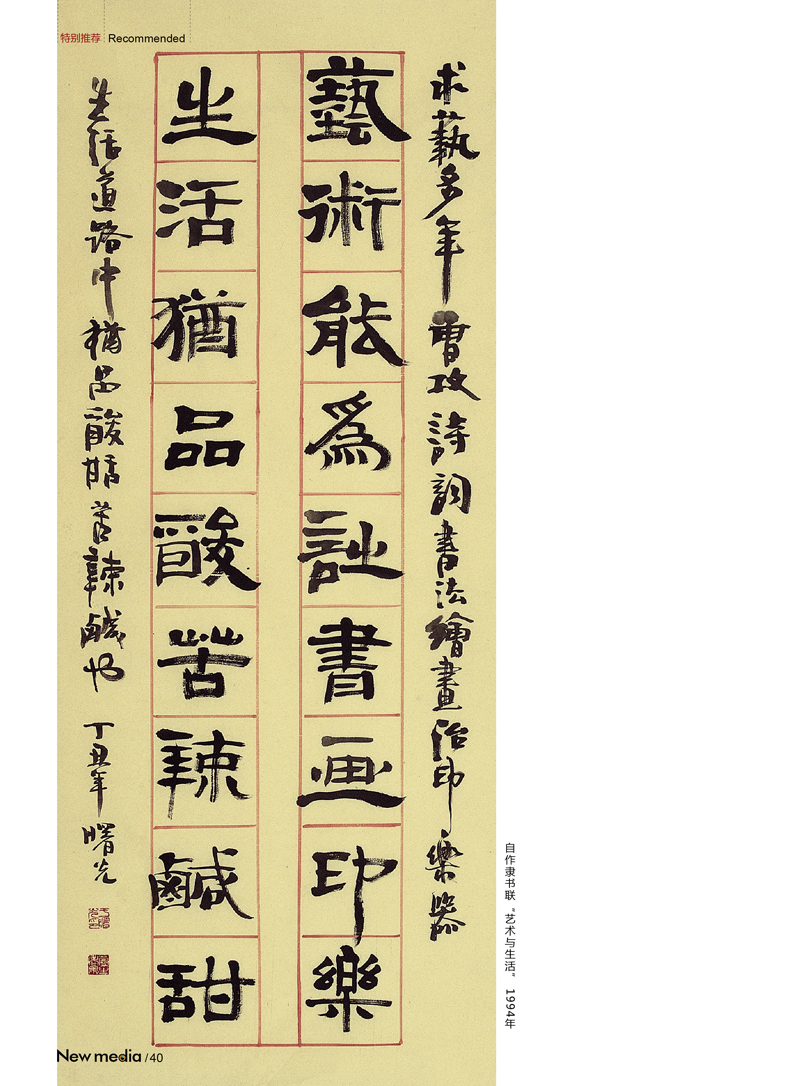 特别推荐 Recommended
求藝多年曾攻詩詞書法繪畫治印樂器
藝術能爲詩書画印樂
生活猶品酸苦辣鹹甜
生活道路中猶品酸甜苦辣鹹也 丁丑年 曙光
自作隶书联“艺术与生活” 1994年
New media / 40